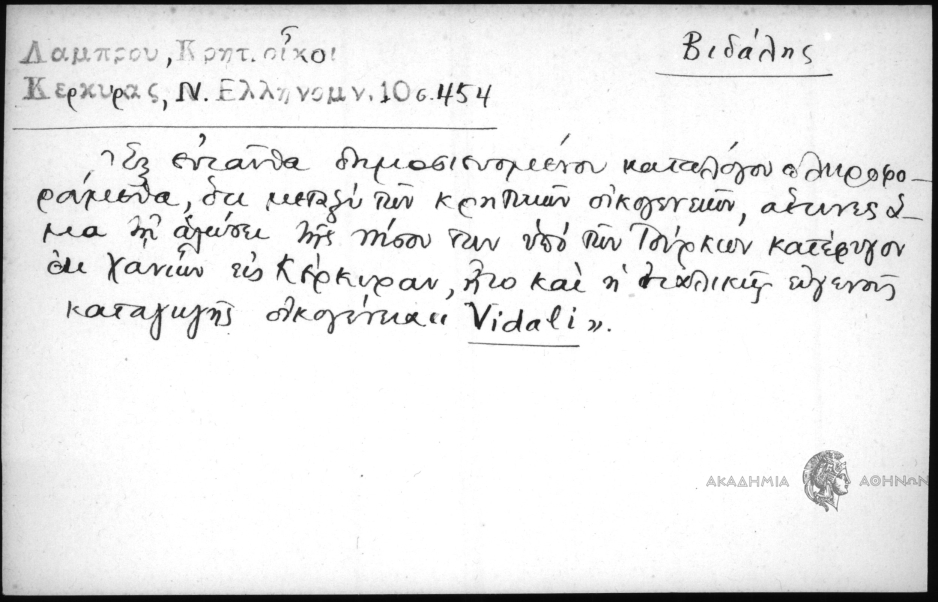 Λαμπρου, Κρητ. οἶκοι
Κερκυρας, Ν. Ελληνομν. 10 σ. 454
Βιδάλης
Ἐξ ἐνταῦθα δημοσιευομένου καταλόγου πληροφο-
ρούμεθα, ὅτι μεταξὺ τῶν κρητικῶν οἰκογενειῶν, αἵτινες ἅ-
μα τῇ ἁλώσει τῆς νήσου των ὑπὸ τῶν Τούρκων κατέφυγον
ἐκ Χανίων εἰς Κέρκυραν, ἦτο καὶ ἡ ἰταλικῆς εὐγενοῦς
καταγωγῆς οἰκογένεια « Vidali ».
ΑΚΑΔΗΜΙΑ ΑΘΗΝΩΝ